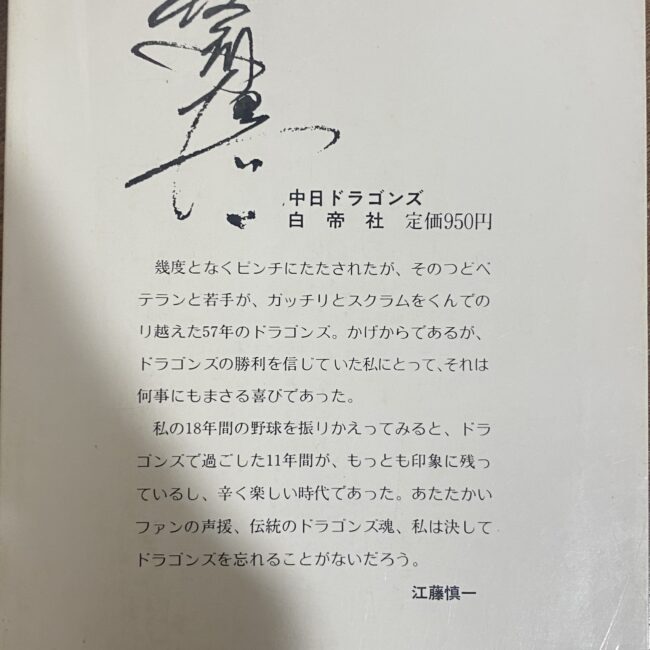 中日ドラゴンズ
白帝社 定価950円
幾度となくピンチにたたされたが、そのつどベ
テランと若手が、ガッチリとスクラムをくんでの
り越えた57年のドラゴンズ。かげからであるが、
ドラゴンズの勝利を信じていた私にとって、それは
何事にもまさる喜びであった。
私の18年間の野球を振りかえってみると、ドラ
ゴンズで過ごした11年間が、もっとも印象に残っ
ているし、辛く楽しい時代であった。あたたかい
ファンの声援、伝統のドラゴンズ魂、私は決して
ドラゴンズを忘れることがないだろう。
江藤慎一